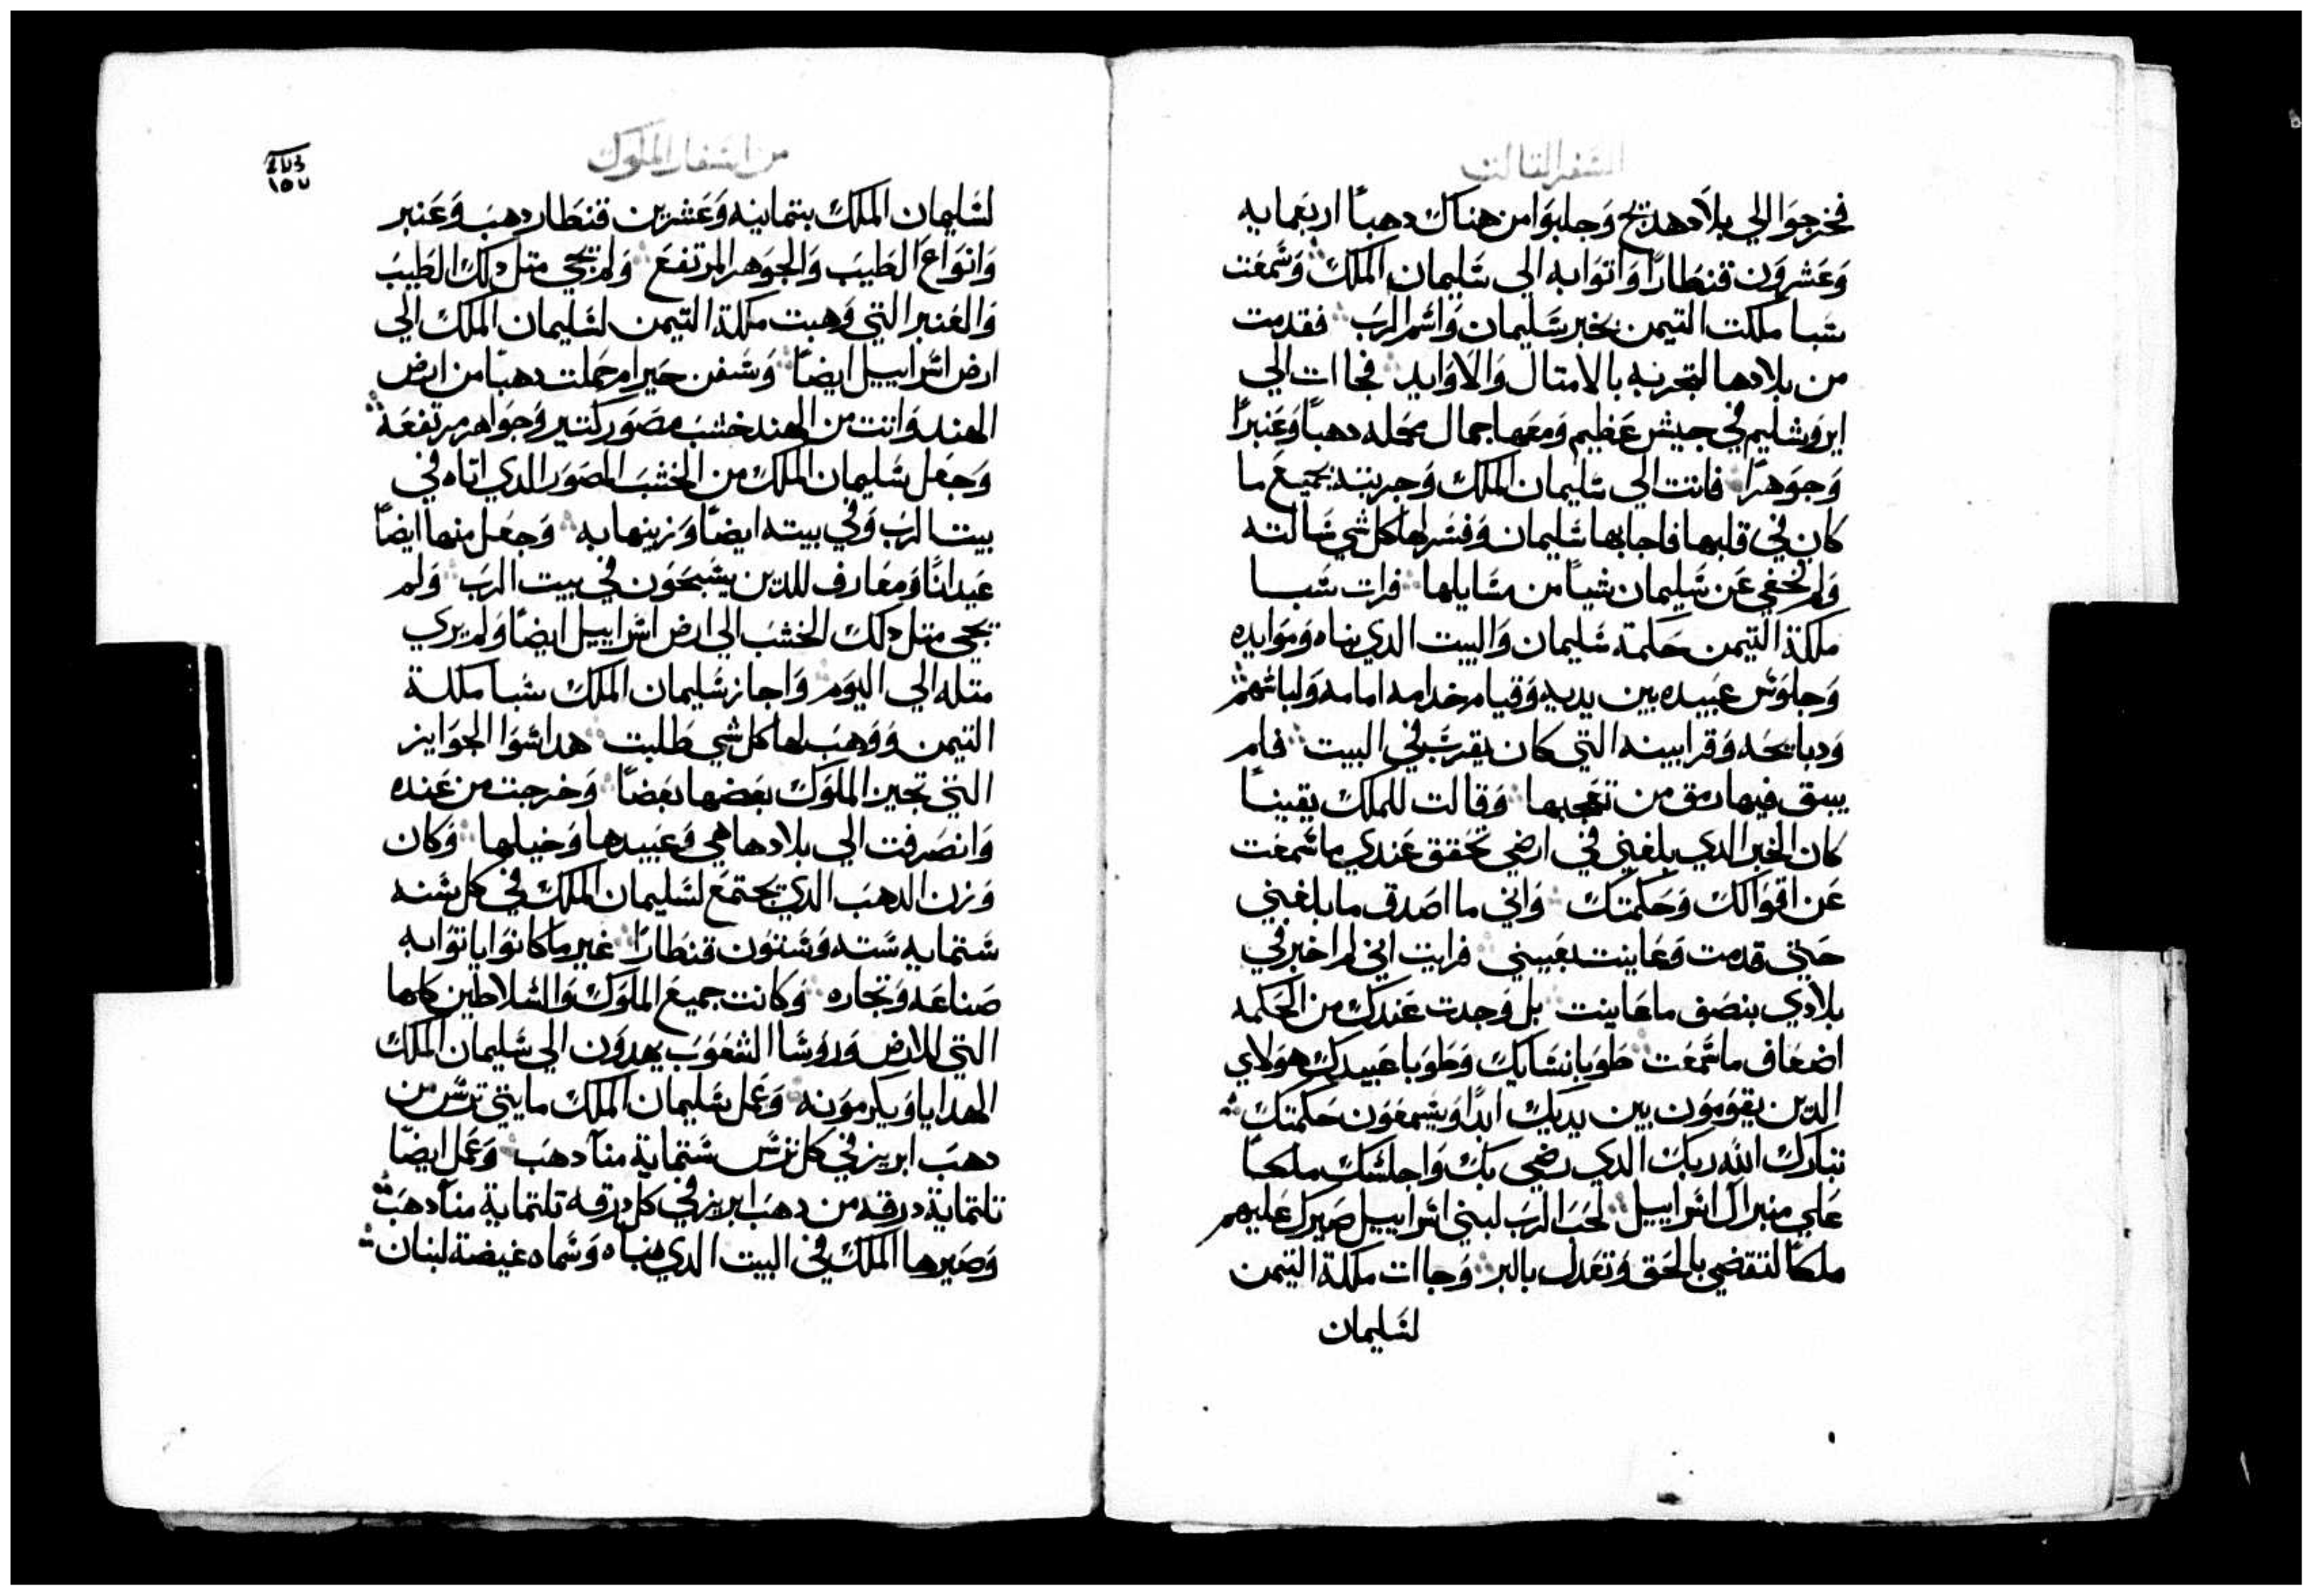 السفر الثالث
فخرجوا الي بلاد هديح وجلبوا من هناك دهبًا اربعمايه
وعشرون قنطارًا واتوا به الي سليمان الملك وسمعت
سبا ملكت التيمن بخبر سليمان واسم الرب فقدمت
من بلادها لتجربه بالامتال والاوابد فجاات الي
ايروشليم في جيش عظيم ومعها جمال محمله دهبًا وعنبرًا
وجوهرًا فاتت الي سليمان الملك وجربته بجميع ما
كان في قلبها فاجابها سليمان وفسر لها كل شي سالته
ولم يخفي عن سليمان شيا من مسايلها فرات سبا
ملكة التيمن حكمة سليمان والبيت الدي بناه وموايده
وجلوس عبيده بين يديه وقيام خدامه امامه ولباسهم
ودبايحه وقرابينه التي كان يقرب في البيت فلم
يبق فيها رمق من تعجبها وقالت للملك يقينًا
كان الخبر الدي بلغني في ارضي تحقق عندي ما سمعت
عن اقوالك وحكمتك واني ما اصدق ما بلغني
حتي قدمت وعاينت بعيني فرايت اني لم اخبر في
بلادي بنصف ما عاينت بل وجدت عندك من الحكمه
اضعاف ما سمعت طوبا نساك وطوبا عبيدك هولاي
الدين يقومون بين يديك ابدًا ويسمعون حكمتك
تبارك الله ربك الدي رضي بك واجلسك ملكًا
علي منبر ال اسراييل لحب الرب لبني اسراييل صيرك عليهم
ملكًا لتقضي بالحق وتعدل بالبر وجاات ملكة التيمن
لسليمان
من اسفار الملوك
١٥٧
لسليمان الملك بتمانيه وعشرين قنطار دهب وعنبر
وانواع الطيب والجوهر المرتفع ولم يجي متل دلك الطيب
والعنبر التي وهبت ملكة التيمن لسليمان الملك الي
ارض اسراييل ايضًا وسفن حيرام حملت دهبًا من ارض
الهند واتت من الهند خشب مصور كتير وجواهر مرتفعة
وجعل سليمان الملك من الخشب المصور الدي اتاه في
بيت الرب وفي بيته ايضًا وزينها به وجعل منها ايضًا
عيدانًا ومعارف للدين يسبحون في بيت الرب ولم
يجي متل دلك الخشب الي ارض اسراييل ايضًا ولم يري
متله الي اليوم واجاز سليمان الملك سبا ملكة
التيمن ووهب لها كل شي طلبت هدا سوا الجوايز
التي تجيز الملوك بعضها بعضًا وخرجت من عنده
وانصرفت الي بلادها هي وعبيدها وخيلها وكان
وزن الدهب الدي يجتمع لسليمان الملك في كل سنه
ستمايه سته وستون قنطارًا غير ما كانوا ياتوا به
صناعه وتجاره وكانت جميع الملوك والسلاطين كلها
التي للارض وروسا الشعوب يهدون الي سليمان الملك
الهدايا ويكرمونه وعمل سليمان الملك مايتي ترس من
دهب ابريز في كل ترس ستماية منا دهب وعمل ايضًا
تلتماية درقه من دهب ابريز في كل درقه تلتماية منا دهب
وصيرها الملك في البيت الدي بناه وسماه غيضة لبنان